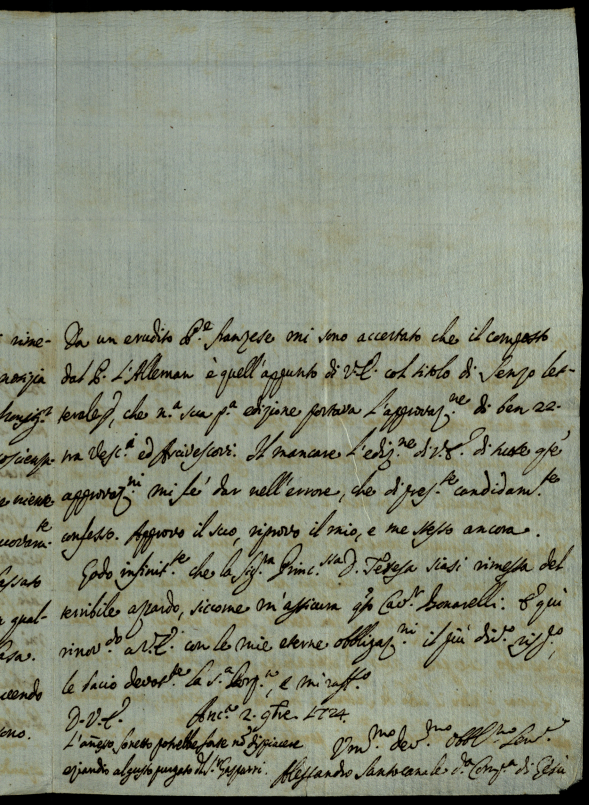 rime-
notizia
niente
qual-
Da un erudito P.e franzese mi sono accertato che il composto
dal P. L'Alleman è quell'appunto di V.E. col titolo di Senso let-
terale, che n.a sua p.a edizione portava l'approvaz.ne di ben 22-
tra Vesc.i ed Arcivescovi. Il mancare l'ediz.ne di V.E. di tutte q.te
approvaz.ni mi fé dar nell'errore, che di pres.te candidam.te
confesso. Approvo il suo, riprovo il mio, e me stesso ancora.
Godo infinit.te che la Sig.ra Princ.ssa D. Teresa siasi rimessa del
terribile azzardo, siccome m'assicura q.sto Cav.r Bonarelli. E qui
rinov.do a V.E. con le mie eterne obbligaz.ni il più div.o
le bacio devot.te la S.a e mi raff.o
D.V.E. Anc.a 2. 9bre. 1724.
L'annesso sonetto potrebbe forse non dispiacere
eziandio al gusto purgato del S.r Gasparri.
Um.mo dev.mo obbl.mo
Alessandro Santocanale d.a Comp.a di Gesù